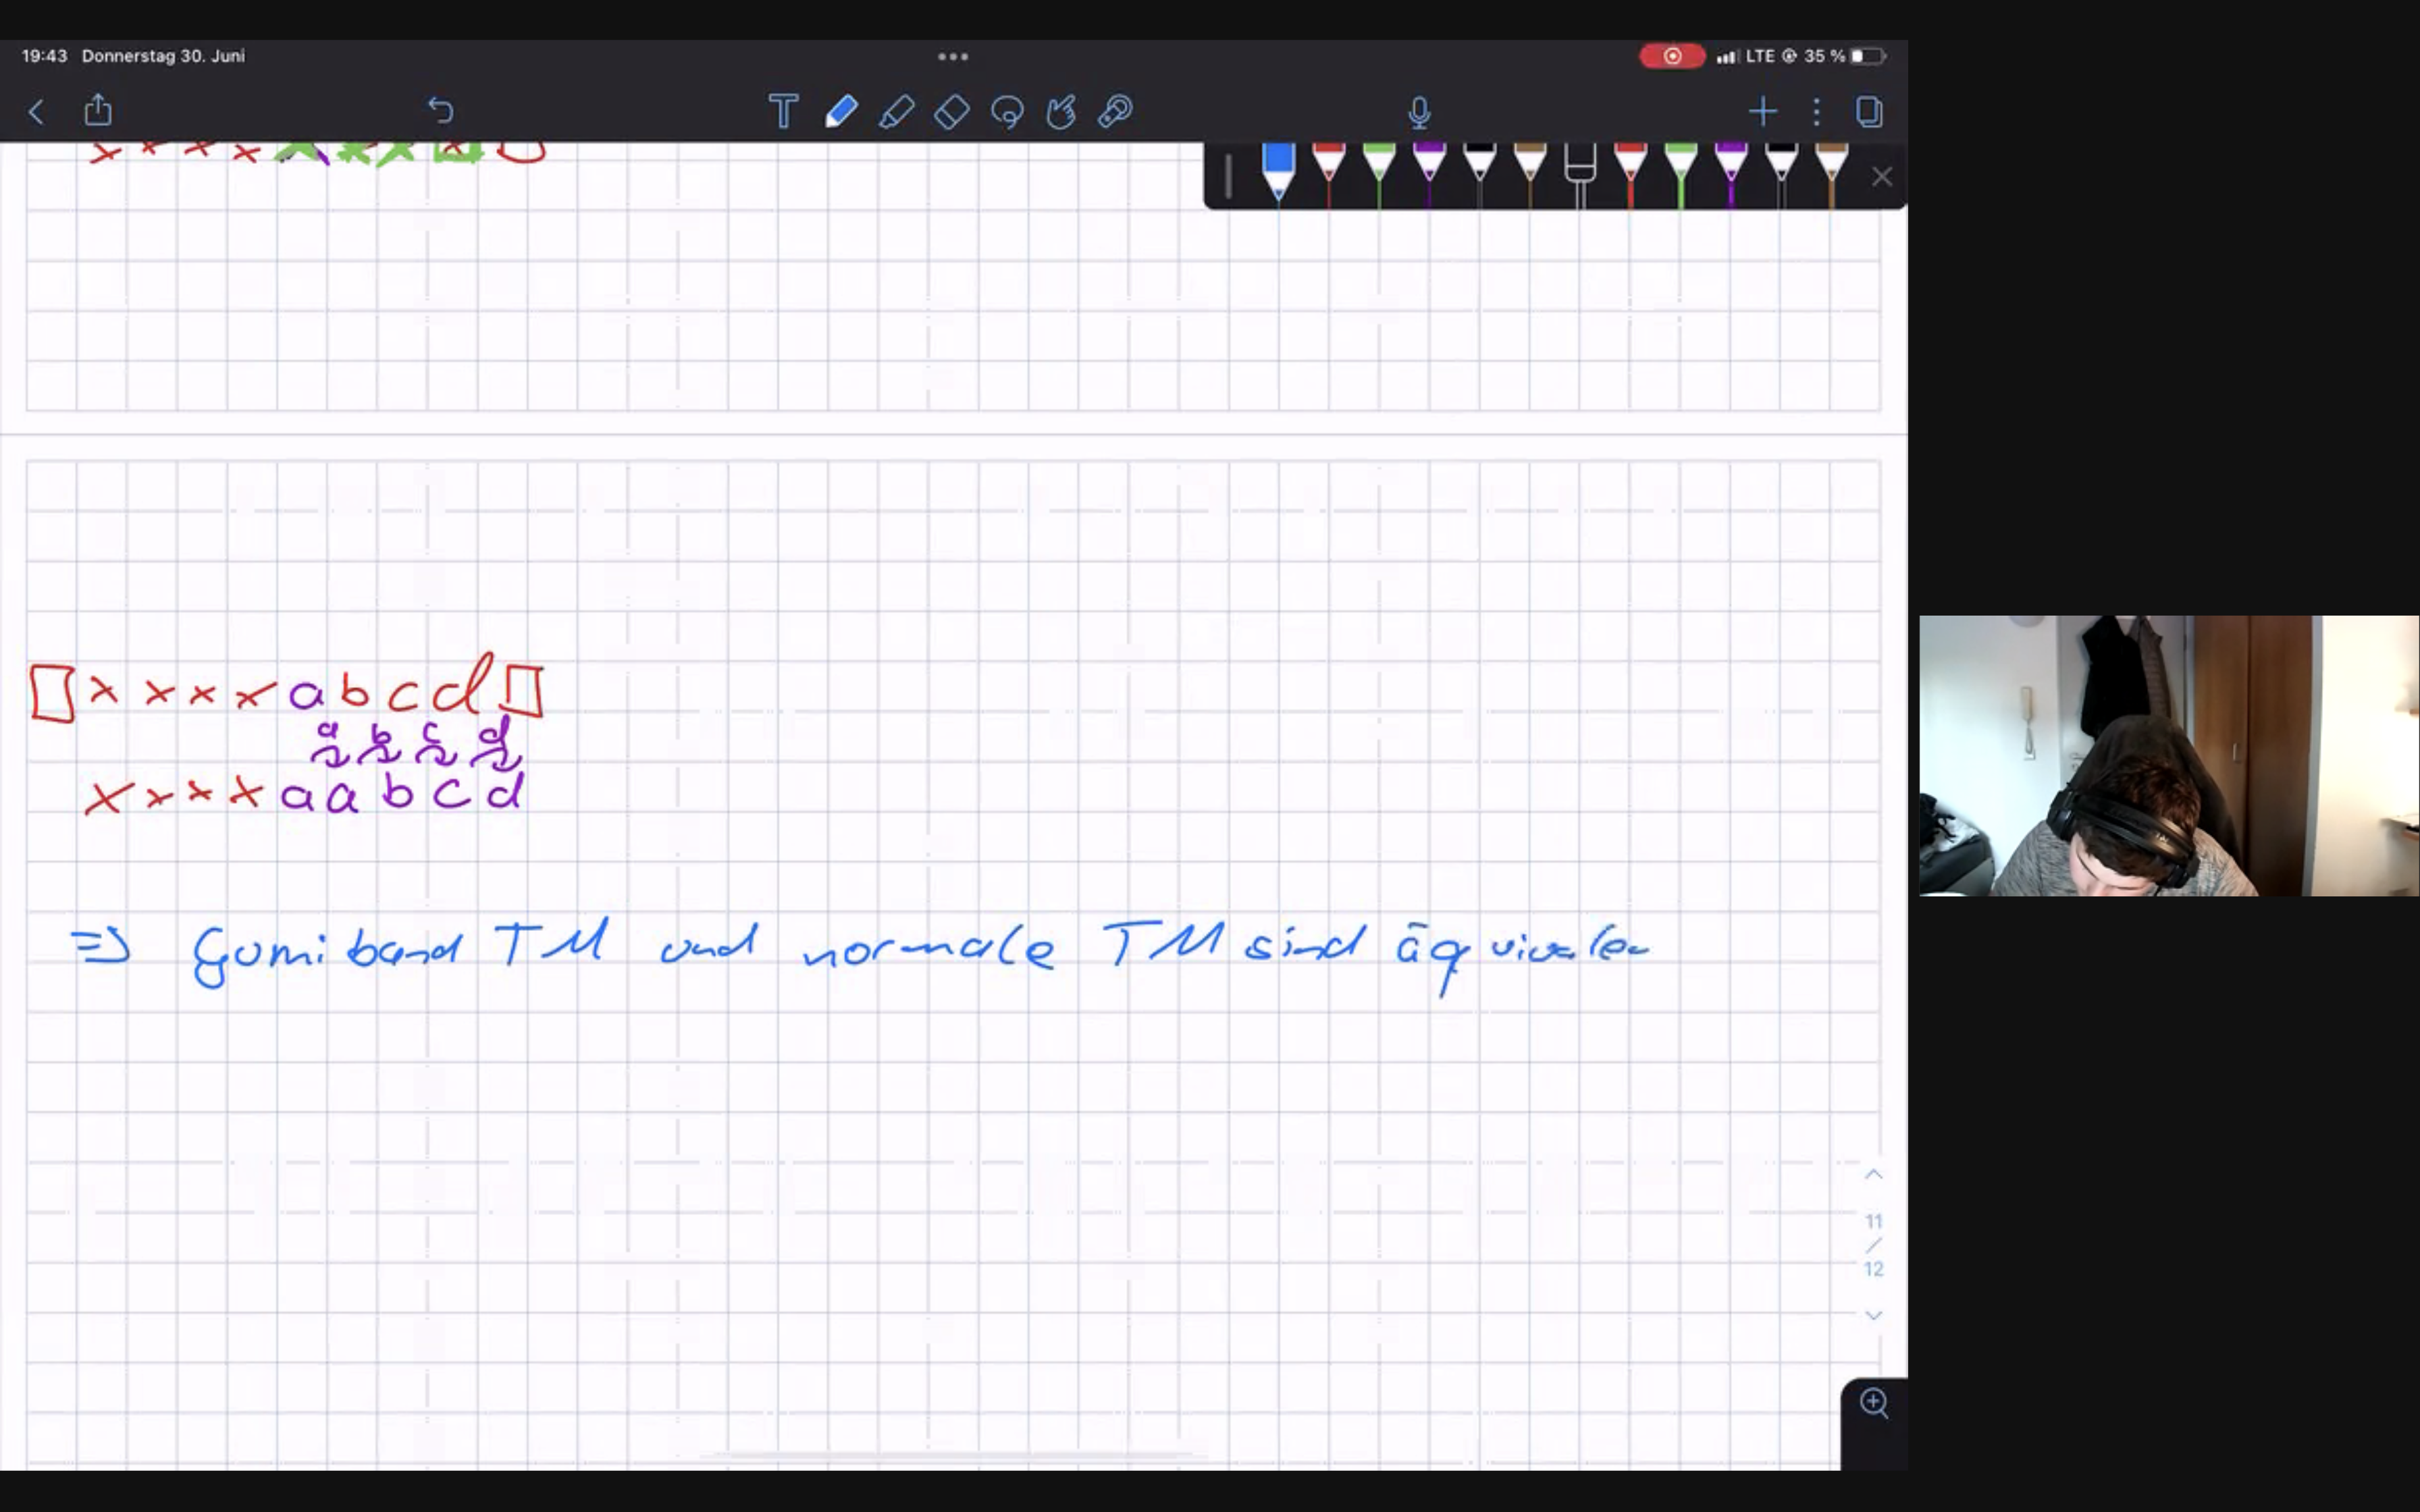 19:43 Donnerstag 30. Juni
LTE 35 %
T
x x x x
□ x x x x a b c d □
a b c d
x x x x a a b c d
=> Gumiband TM und normale TM sind äquivalen
11
/
12